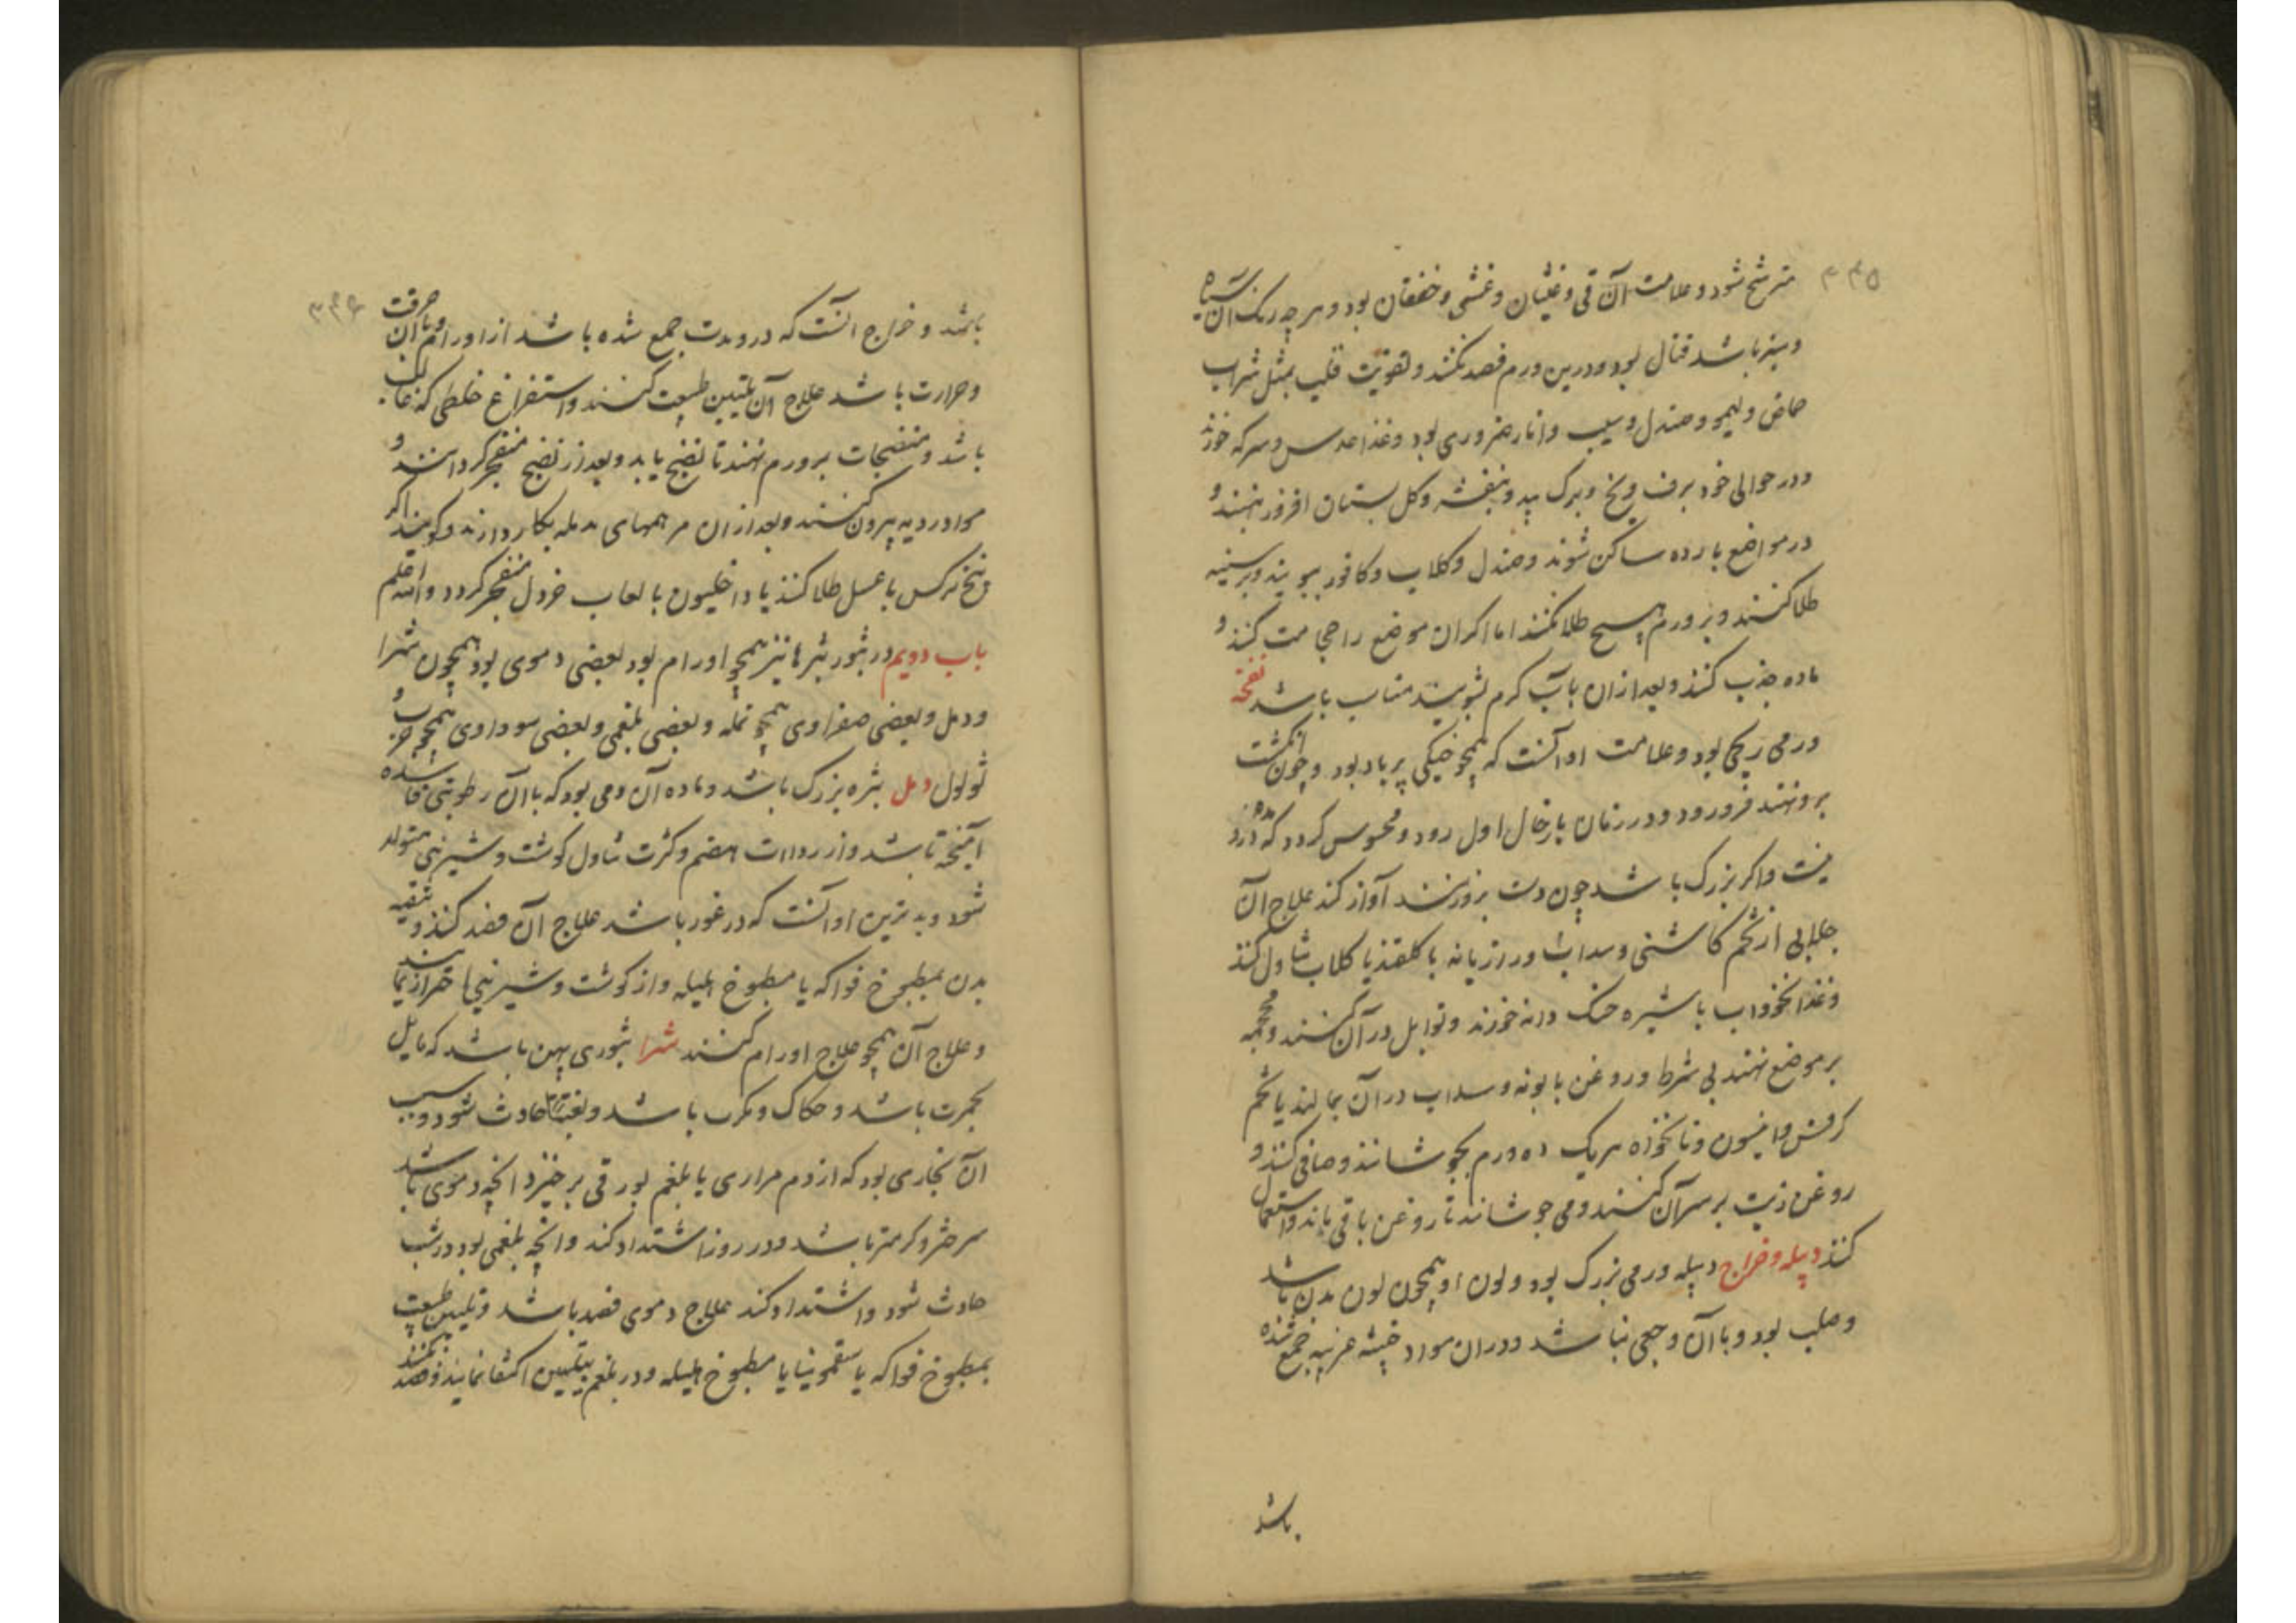 ۳۴۵
مترشح شود و علامت آن قی و غثیان و غشی و خفقان بود و هر چه رنک آن سیاه
و سبز باشد قتال بود و درین ورم فصد نکنند و تقویت قلب بمثل شراب
حماض و لیمو و صندل و سیب و انار ضروری بود و غذا عدس و سرکه خورند
و در حوالی خود برف و یخ و برک بید و بنفشه و کل بستان افروز نهند و
در مواضع بارده ساکن شوند و صندل و کلاب و کافور ببویند و بر سینه
طلا کنند و بر ورم هیچ طلا نکنند اما اکر ان موضع را حجامت کنند و
ماده جذب کنند و بعد از ان بآب کرم بشویند مناسب باشد نفخه
ورمی ریحی بود و علامت او آنست که همچو خیکی پر باد بود و چون انکشت
برو نهند فرو رود و در زمان باز بحال اول رود و محسوس کردد که درو
نیست و اکر بزرک باشد چون دست برو زنند آواز کند علاج آن
جلابی از تخم کاسنی و سداب و رازیانه با کلقند یا کلاب تناول کنند
و غذا نخوداب با شیره خسک دانه خورند و توابل در آن کنند و محجمه
بر موضع نهند بی شرط و روغن بابونه و سداب در آن بمالند یا تخم
کرفس و انیسون و نانخواه هریک ده درم بجوشانند و صافی کنند و
روغن زیت بر سر آن کنند و می جوشانند تا روغن باقی ماند و استعمال
کنند دبیله و خراج دبیله ورمی بزرک بود و لون او همچون لون بدن باشد
و صلب بود و با آن وجعی نباشد و در ان مواد خبیثه غریبه جمع شده
باشد
۳۴۶
باشد و خراج آنست که درو مدت جمع شده باشد از اورام و با آن حرقت
و حرارت باشد علاج آن تلیین طبیعت کنند و استفراغ خلطی که غالب
باشد و منضجات بر ورم نهند تا نضج یابد و بعد از نضج منفجر کردانند و
مواد ردیه بیرون کنند و بعد از ان مرهمهای مدمله بکار دارند و کویند اکر
بیخ نرکس با عسل طلا کنند یا داخلیون با لعاب خردل منفجر کردد والله اعلم
باب دویم در بثور بثرها نیز همچو اورام بود بعضی دموی بود همچون شرا
و دمل و بعضی صفراوی همچو نمله و بعضی بلغمی و بعضی سوداوی همچو جرب و
ثولول دمل بثره بزرک باشد و ماده آن دمی بود که با آن رطوبتی فاسده
آمیخته باشد و از رداءت هضم و کثرت تناول کوشت و شیرینی متولد
شود و بدترین او آنست که در غور باشد علاج آن فصد کنند و تنقیه
بدن بمطبوخ فواکه یا مطبوخ هلیله و از کوشت و شیرینیها احتراز نمایند
و علاج آن همچو علاج اورام کنند شرا بثوری پهن باشد که مایل
بحمرت باشد و حکاک و مکرب باشد و بغتة حادث شود و سبب
آن بخاری بود که از دم مراری یا بلغم بورقی برخیزد انچه دموی باشد
سرختر و کرمتر باشد و در روز اشتداد کند و انچه بلغمی بود در شب
حادث شود و اشتداد کند علاج دموی فصد باشد و تلیین طبیعت
بمطبوخ فواکه یا سقمونیا یا مطبوخ هلیله و در بلغمی بتلیین اکتفا نمایند و فصد نکنند